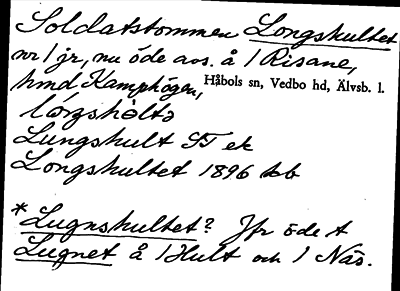 Soldatstommen Longshultet
nr 1 jr, nu öde avs. å 1 Risane,
hmd Kamphögen, Håbols sn, Vedbo hd, Älvsb. l.
Lungshult GT ek
Longshultet 1896 kb
*Lugnshultet? Jfr öde t
Lugnet å 1 Hult och 1 Näs.